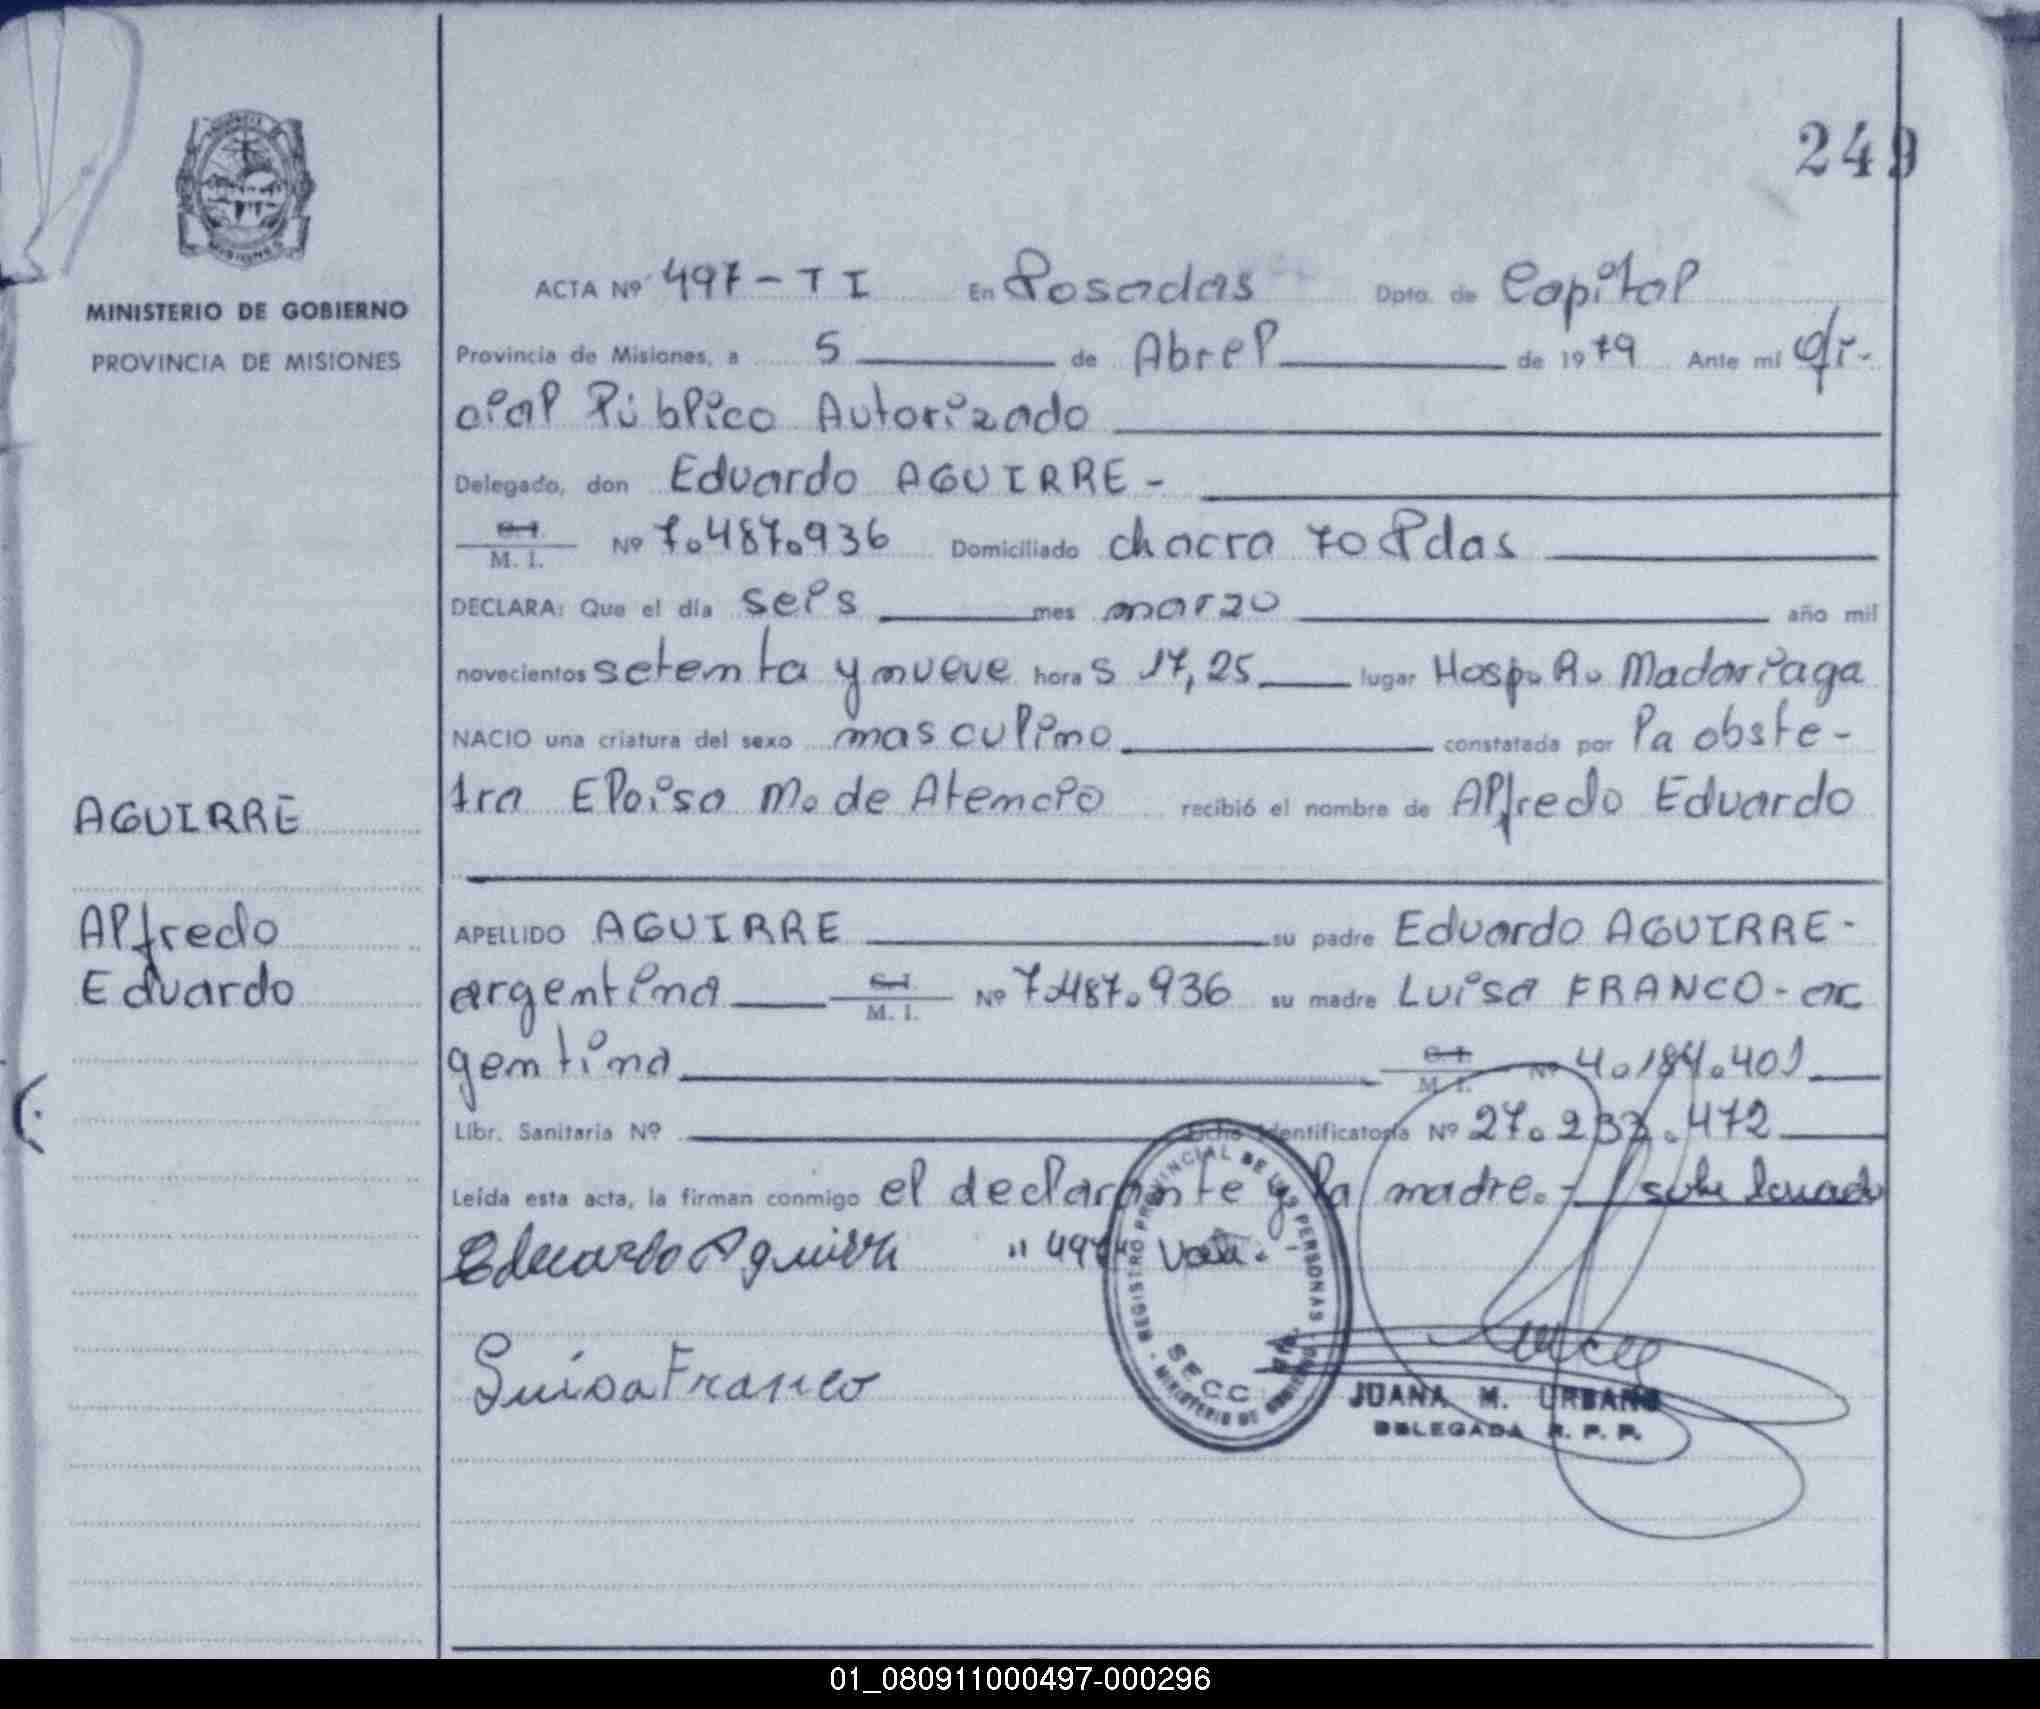 249
MINISTERIO DE GOBIERNO
PROVINCIA DE MISIONES
ACTA Nº 497 - T I En Posadas Dpto. de Capital
Provincia de Misiones, a 5 de Abril de 1979 Ante mí Ofi-
cial Público Autorizado
Delegado, don Eduardo AGUIRRE -
C. I.
M. I. Nº 7.487.936 Domiciliado chacra 70 Pdas
DECLARA: Que el día seis mes marzo año mil
novecientos setenta y nueve horas 17,25 lugar Hosp. R. Madariaga
NACIO una criatura del sexo masculino constatada por la obste-
tra Eloisa M. de Atencio recibió el nombre de Alfredo Eduardo
AGUIRRE
Alfredo
Eduardo
APELLIDO AGUIRRE su padre Eduardo AGUIRRE -
argentina C. I.
M. I. Nº 7.487.936 su madre Luisa FRANCO - ar
gentina C. I.
M. I. Nº 4.184.401
Libr. Sanitaria Nº Ficha Identificatoria Nº 27.233.472
Leída esta acta, la firman conmigo el declarante y la madre. -
Eduardo Aguirre "497"
Luisa Franco
REGISTRO PROVINCIAL DE LAS PERSONAS
SECC
MINISTERIO DE
JUANA M. URBANO
DELEGADA R. P. P.
01_080911000497-000296